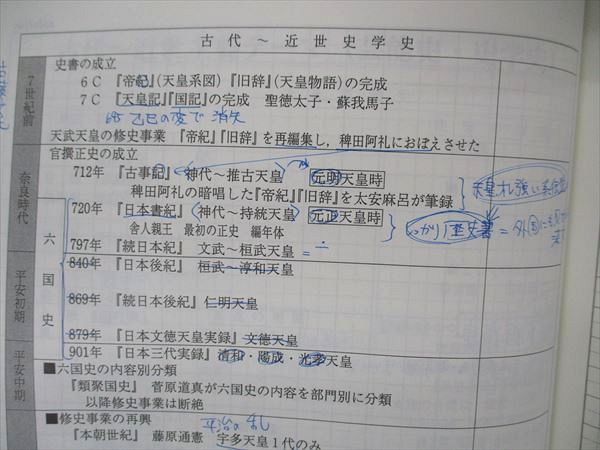 古代～近世史学史
史書の成立
7世紀前
6C 『帝紀』(天皇系図)『旧辞』(天皇物語)の完成
7C 『天皇記』『国記』の完成 聖徳太子・蘇我馬子
645 乙巳の変で消失
天武天皇の修史事業 『帝紀』『旧辞』を再編集し，稗田阿礼におぼえさせた
官撰正史の成立
奈良時代
712年 『古事記』 神代～推古天皇 元明天皇時
稗田阿礼の暗唱した『帝紀』『旧辞』を太安麻呂が筆録
720年 『日本書紀』 神代～持統天皇 元正天皇時
舎人親王 最初の正史 編年体
しっかり歴史書
六国史
797年 『続日本紀』 文武～桓武天皇
平安初期
840年 『日本後紀』 桓武～淳和天皇
869年 『続日本後紀』 仁明天皇
879年 『日本文徳天皇実録』 文徳天皇
平安中期
901年 『日本三代実録』 清和・陽成・光孝天皇
■六国史の内容別分類
『類聚国史』 菅原道真が六国史の内容を部門別に分類
以降修史事業は断絶
■修史事業の再興
平治の乱
『本朝世紀』 藤原通憲 宇多天皇1代のみ